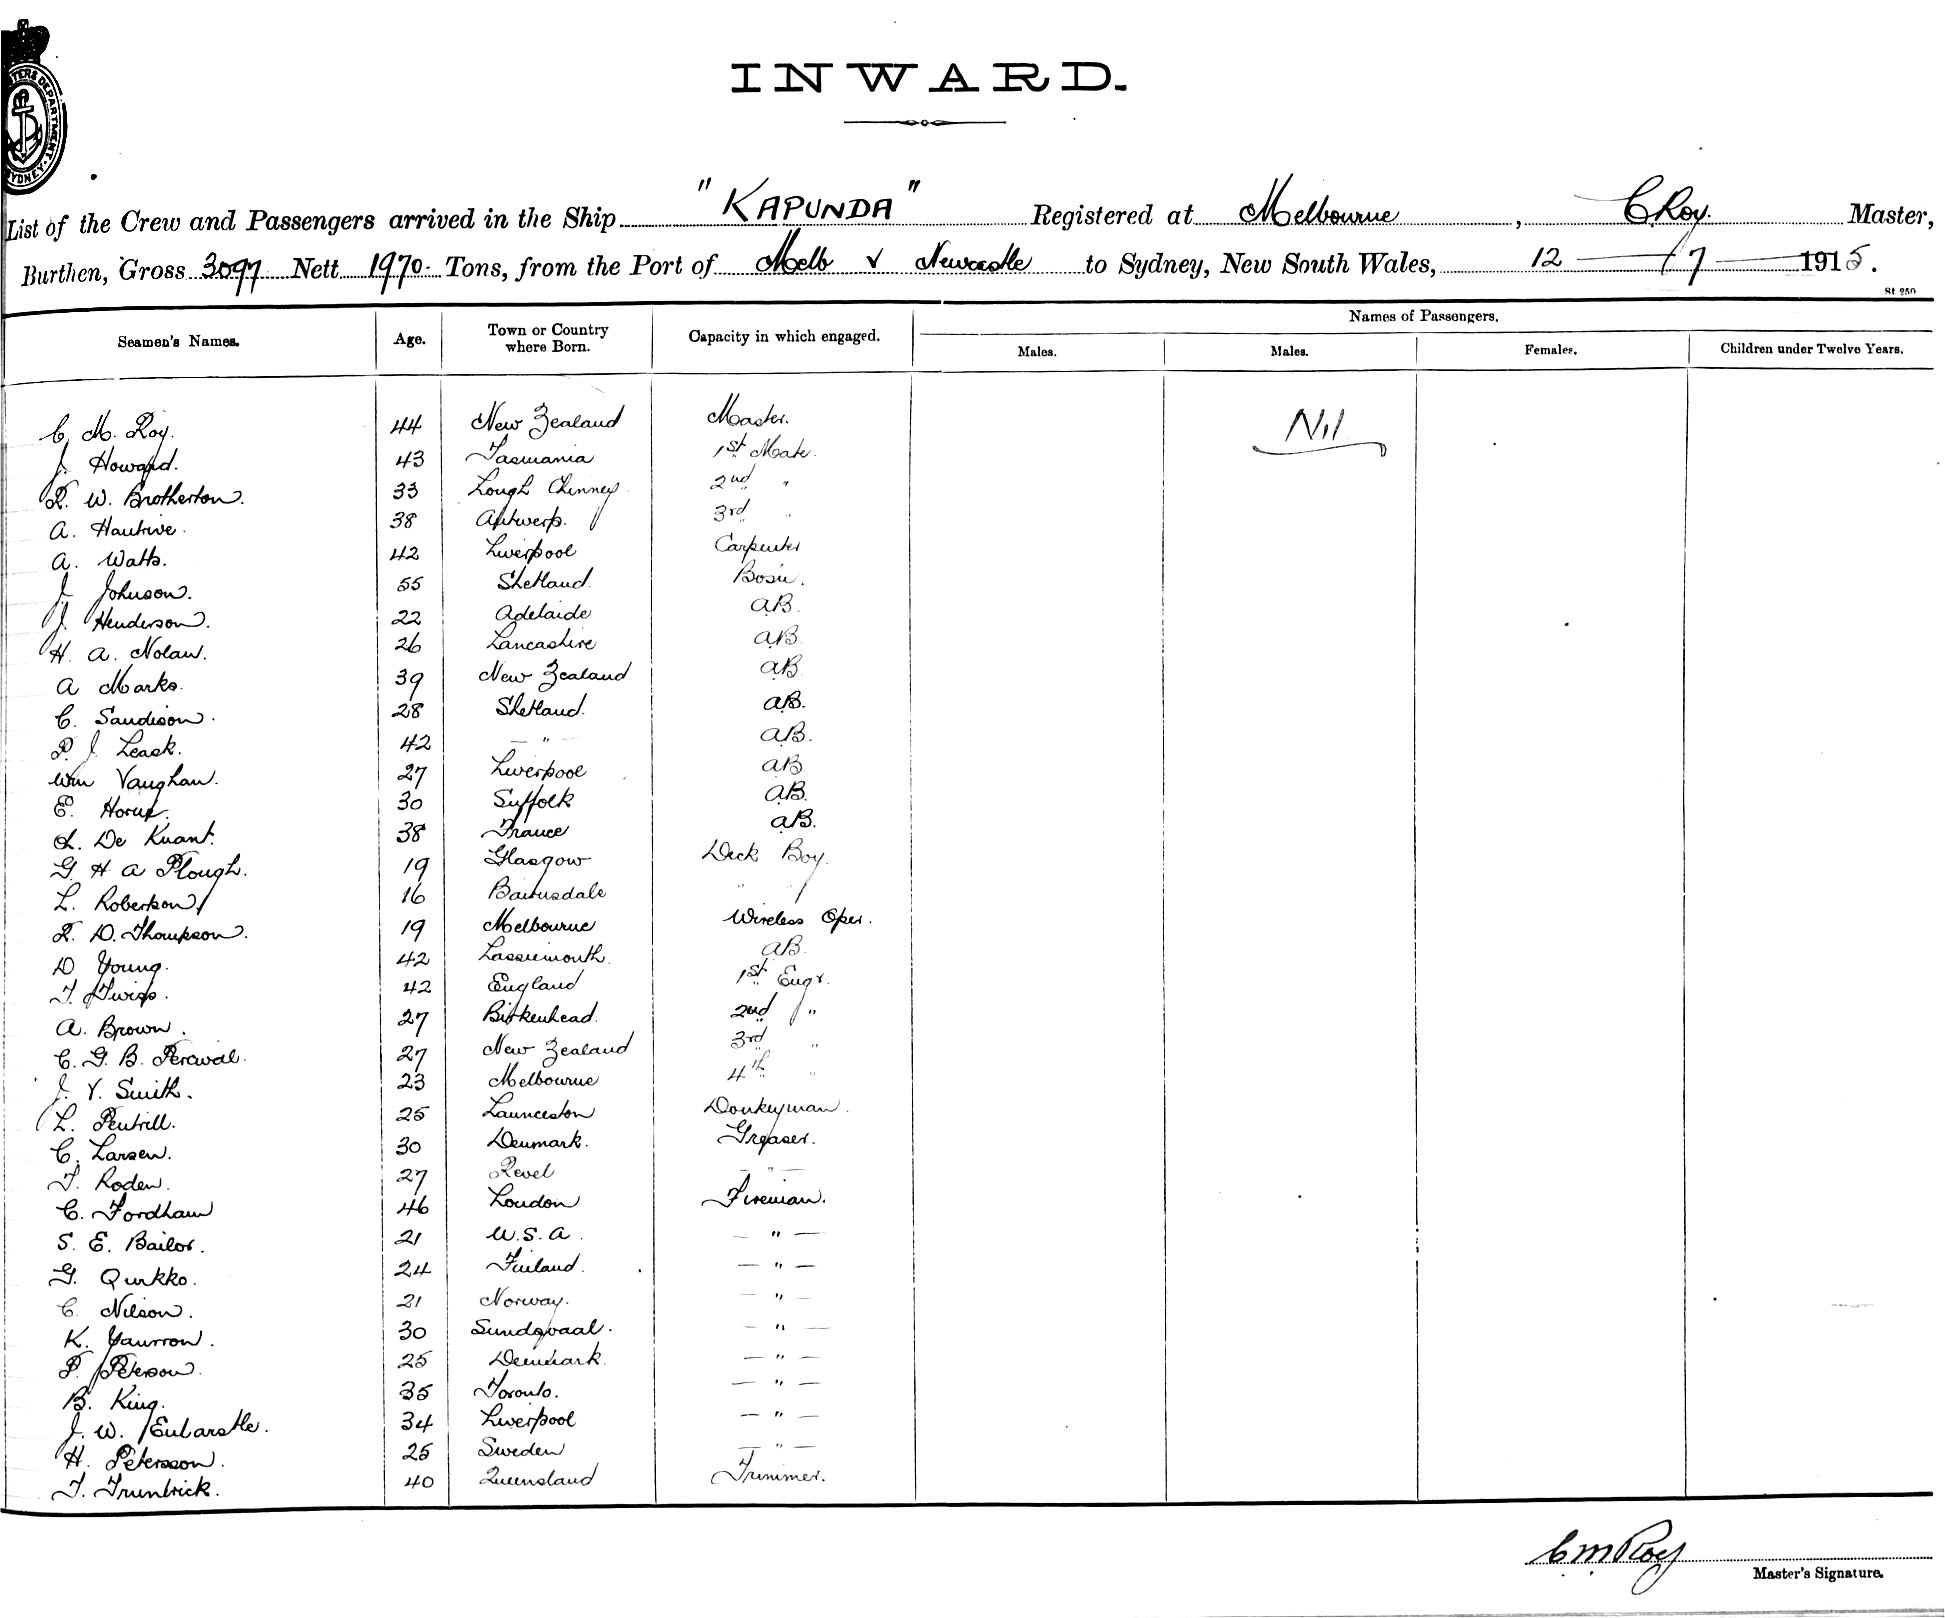 INWARD.
List of the Crew and Passengers arrived in the Ship "KAPUNDA" Registered at Melbourne, C Roy. Master,
Burthen, Gross 3097 Nett 1970 Tons, from the Port of Melb & Newcastle to Sydney, New South Wales, 12 / 7 1915.
St 250
Names of Passengers.
Seamen's Names. Age. Town or Country where Born. Capacity in which engaged. Males. Males. Females. Children under Twelve Years.
C. M. Roy. 44 New Zealand Master. Nil
J. Howard. 43 Tasmania 1st Mate.
R. W. Brotherton. 33 Lough 2nd "
A. Hautrive 38 Antwerp. 3rd "
A. Watts. 42 Liverpool Carpenter
J. Johnson. 55 Shetland. Bosn.
J. Henderson. 22 Adelaide AB.
H. A. Nolan. 26 Lancashire AB
A Marks. 39 New Zealand AB
C. Sandison. 28 Shetland. AB.
P. J. Leask. 42 — " — AB.
Wm Vaughan. 27 Liverpool AB
E. Horne. 30 Suffolk AB.
L. De Knant. 38 France AB.
G. H A Plough. 19 Glasgow Deck Boy.
L. Robertson 16 Bairnsdale " "
R. D. Thompson. 19 Melbourne Wireless Oper.
D Young. 42 Lossiemouth. AB.
T. Twiss. 42 England 1st Engr.
A. Brown. 27 Birkenhead. 2nd "
C. G. B. Percival. 27 New Zealand 3rd "
J. V. Smith. 23 Melbourne 4th "
L. Pentrill. 25 Launceston Donkeyman.
C. Larsen. 30 Denmark. Greaser.
T. Roden. 27 Revel — " —
C. Fordham 46 London Fireman.
S. E. Bailor. 21 U.S.A. — " —
G. Qukko. 24 Finland. — " —
C. Nilson. 21 Norway. — " —
K. 30 — " —
P. Peterson. 25 Denmark. — " —
B. King. 35 Toronto. — " —
J. W. 34 Liverpool — " —
H. Petersson. 25 Sweden — " —
T. Trunbrick. 40 Queensland Trimmer.
C M Roy
Master's Signature.